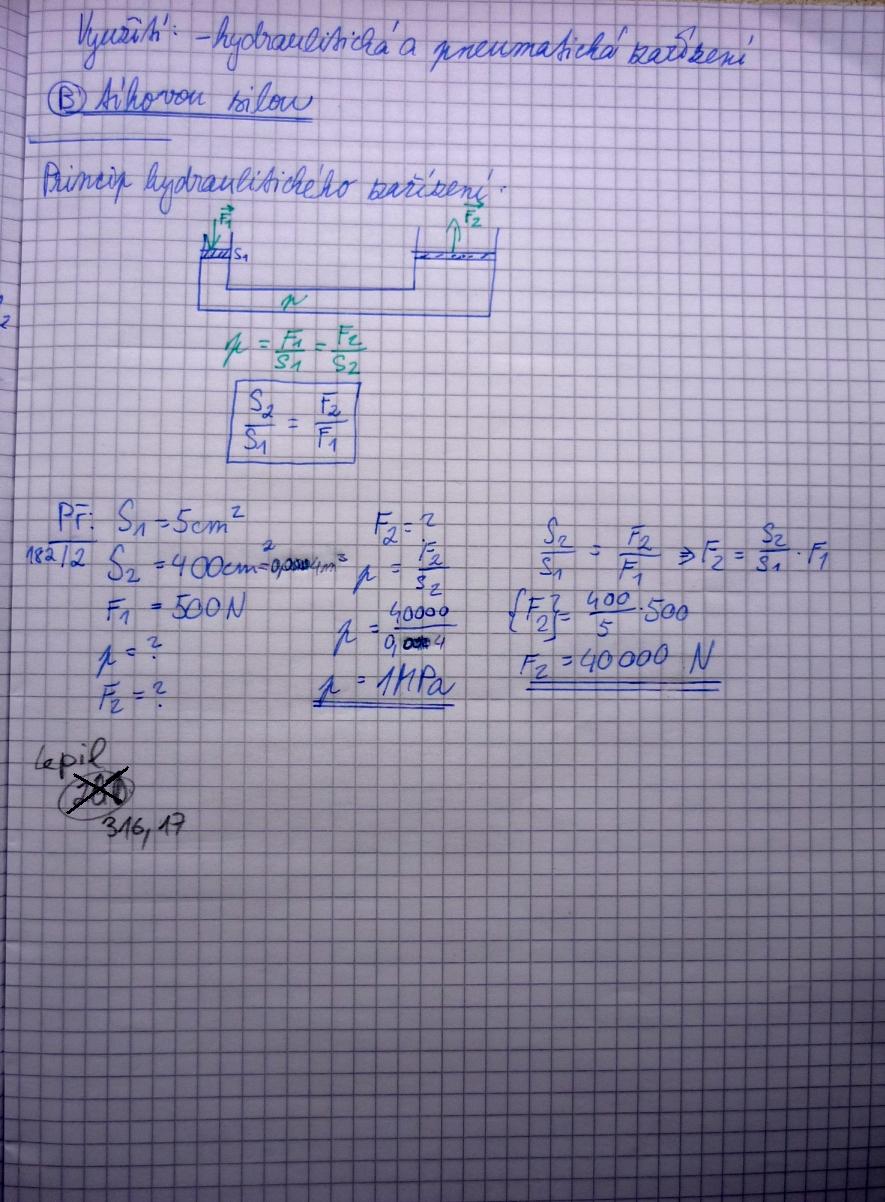 Využití: -hydraulitická a pneumatická zařízení
Ⓑ tíhovou silou
Princip hydraulitického zařízení:
F₁ F₂
S₁
p
p = F₁/S₁ = F₂/S₂
S₂/S₁ = F₂/F₁
Př: S₁ = 5cm²
182/2 S₂ = 400cm²
F₁ = 500N
p = ?
F₂ = ?
F₂ = ?
p = F₂/S₂
p = 40000/
p = 1MPa
S₂/S₁ = F₂/F₁ ⇒ F₂ = S₂/S₁ · F₁
{F₂} = 400/5 · 500
F₂ = 40000 N
Lepil
316, 17